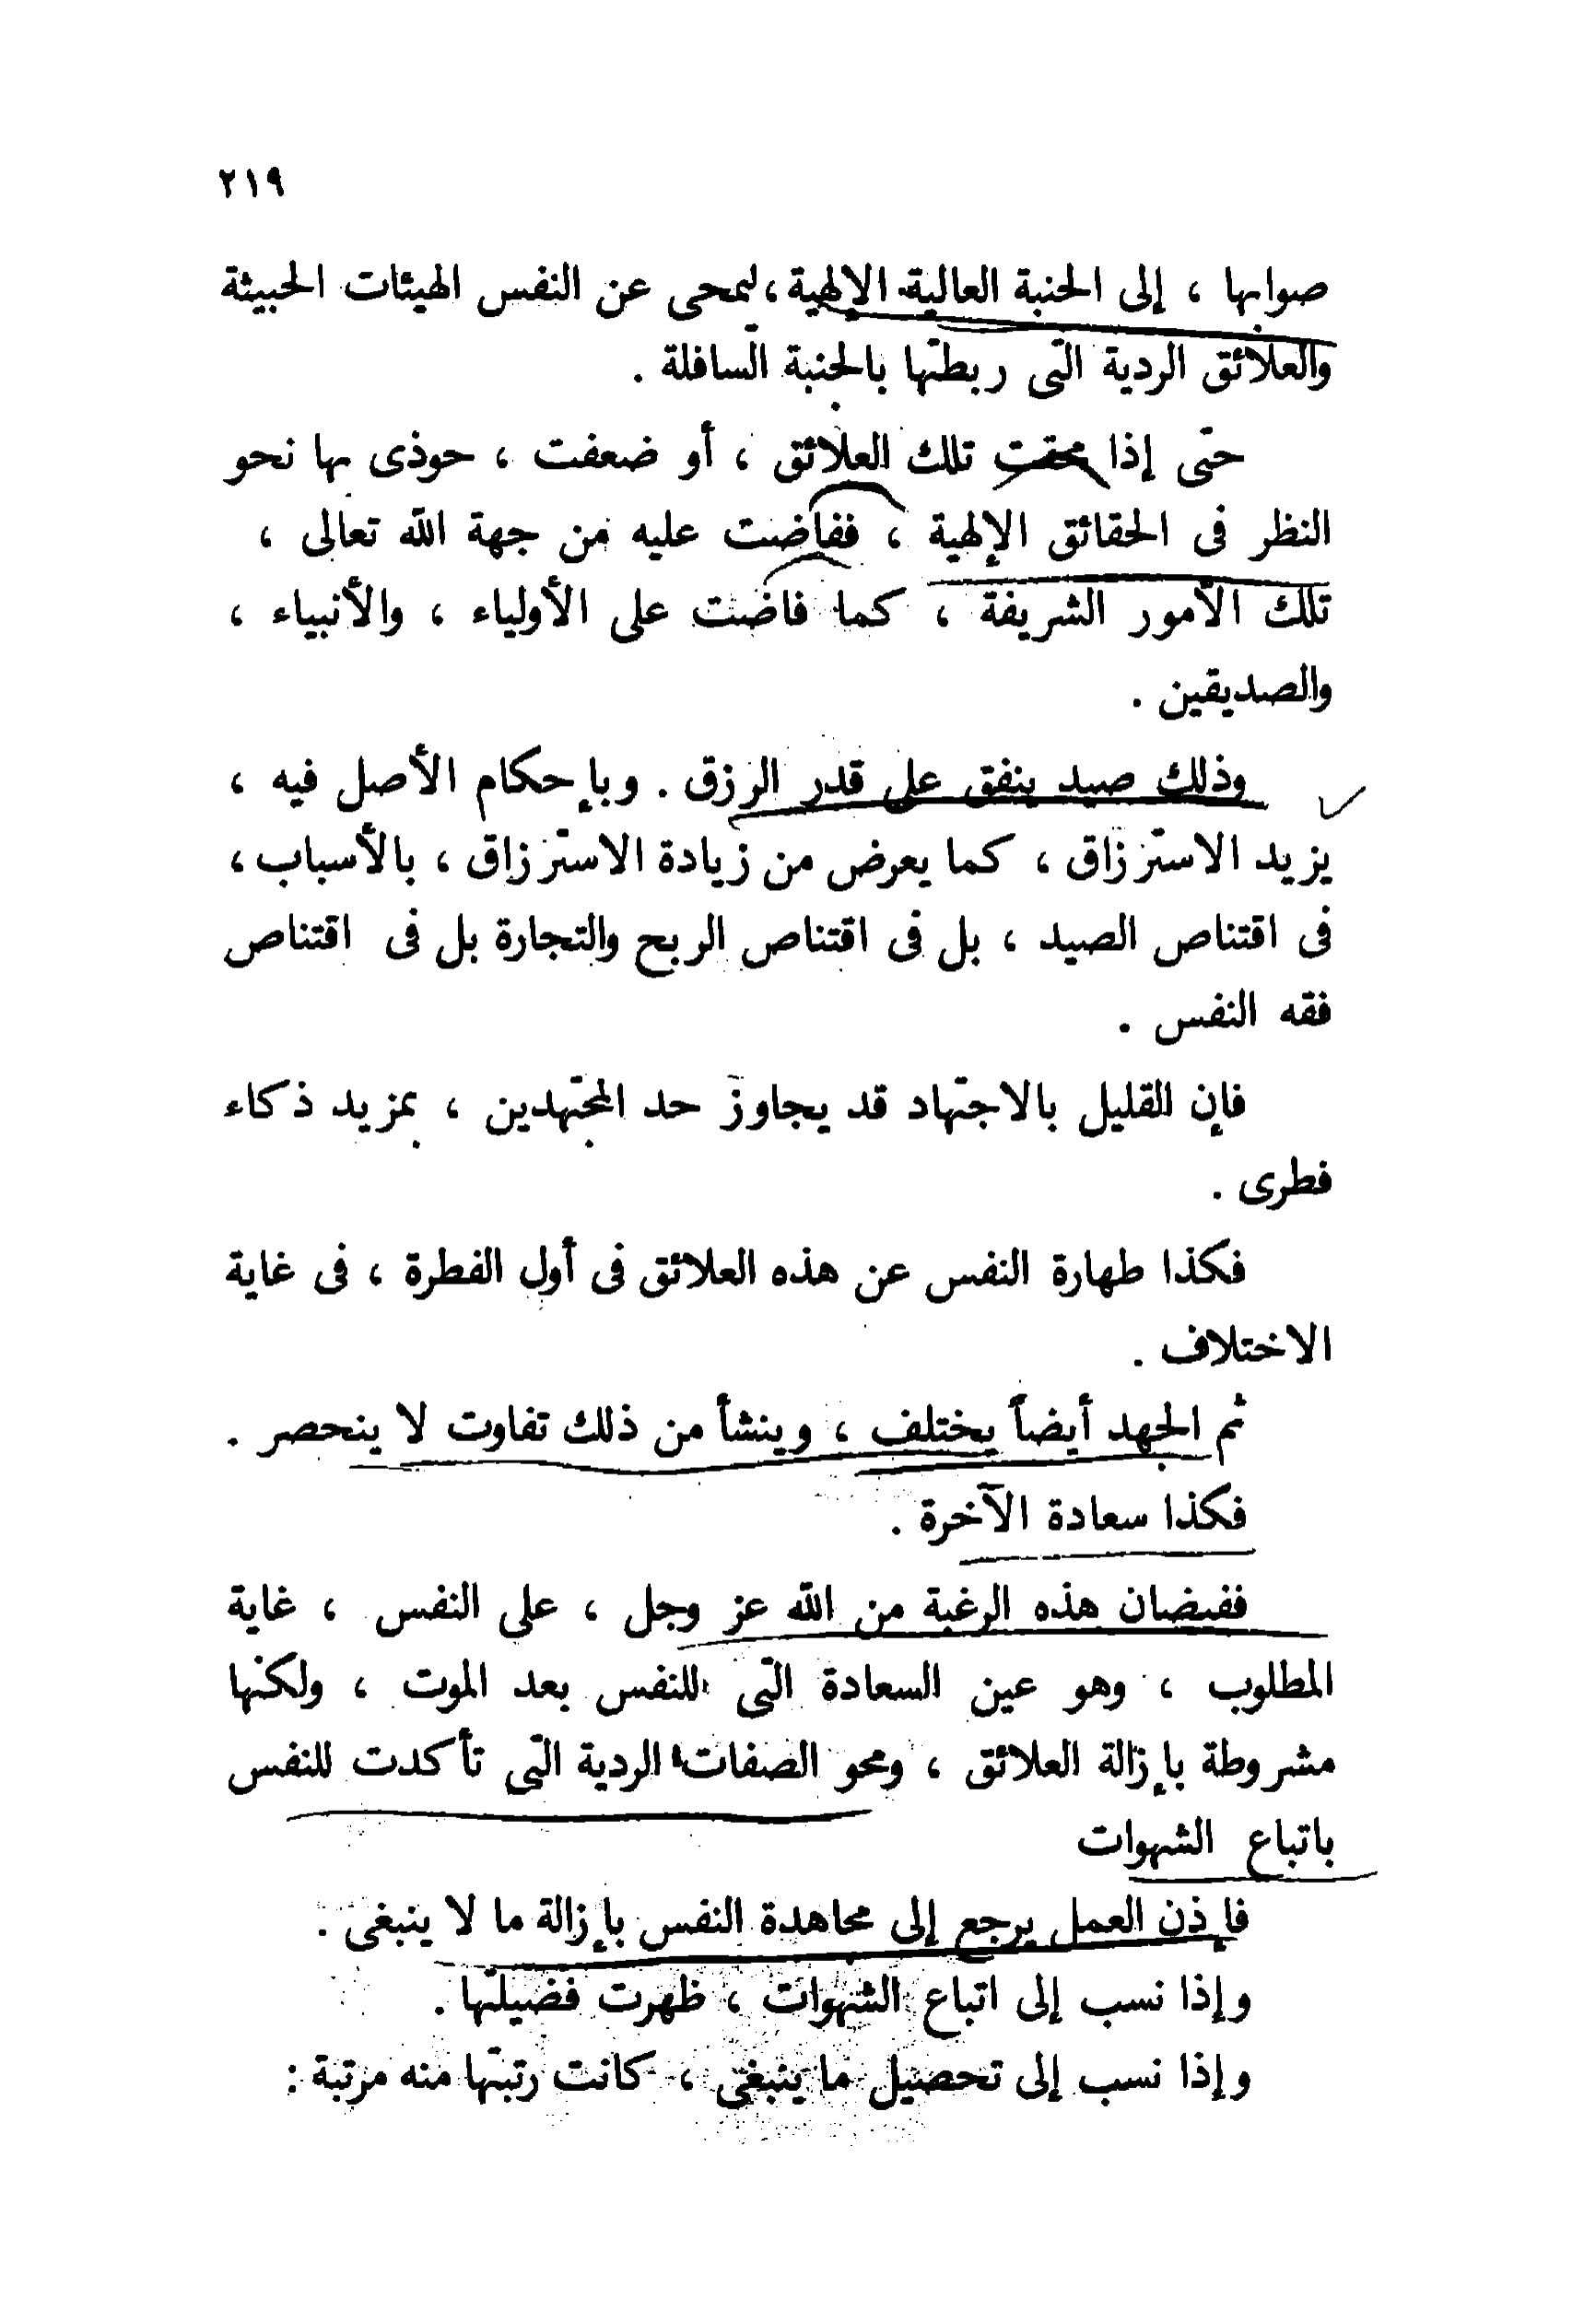 ٢١٩
صوابها ، إلى الجنبة العالية الإلهية ، ليمحى عن النفس الهيئات الخبيثة
والعلائق الردية التى ربطتها بالجنبة السافلة .
حتى إذا محقت تلك العلائق ، أو ضعفت ، حوذى بها نحو
النظر فى الحقائق الإلهية ، ففاضت عليه من جهة الله تعالى ،
تلك الأمور الشريفة ، كما فاضت على الأولياء ، والأنبياء ،
والصديقين .
وذلك صيد ينفق على قدر الرزق . وبإحكام الأصل فيه ،
يزيد الاسترزاق ، كما يعرض من زيادة الاسترزاق ، بالأسباب ،
فى اقتناص الصيد ، بل فى اقتناص الربح والتجارة بل فى اقتناص
فقه النفس .
فإن للقليل بالاجتهاد قد يجاوز حد المجتهدين ، بمزيد ذكاء
فطرى .
فكذا طهارة النفس عن هذه العلائق فى أول الفطرة ، فى غاية
الاختلاف .
ثم الجهد أيضاً يختلف ، وينشأ من ذلك تفاوت لا ينحصر .
فكذا سعادة الآخرة .
ففيضان هذه الرغبة من الله عز وجل ، على النفس ، غاية
المطلوب ، وهو عين السعادة التى للنفس بعد الموت ، ولكنها
مشروطة بإزالة العلائق ، ومحو الصفات الردية التى تأكدت للنفس
باتباع الشهوات
فإذن العمل يرجع إلى مجاهدة النفس بإزالة ما لا ينبغى .
وإذا نسب إلى اتباع الشهوات ، ظهرت فضيلتها .
وإذا نسب إلى تحصيل ما ينبغى ، كانت رتبتها منه مرتبة :